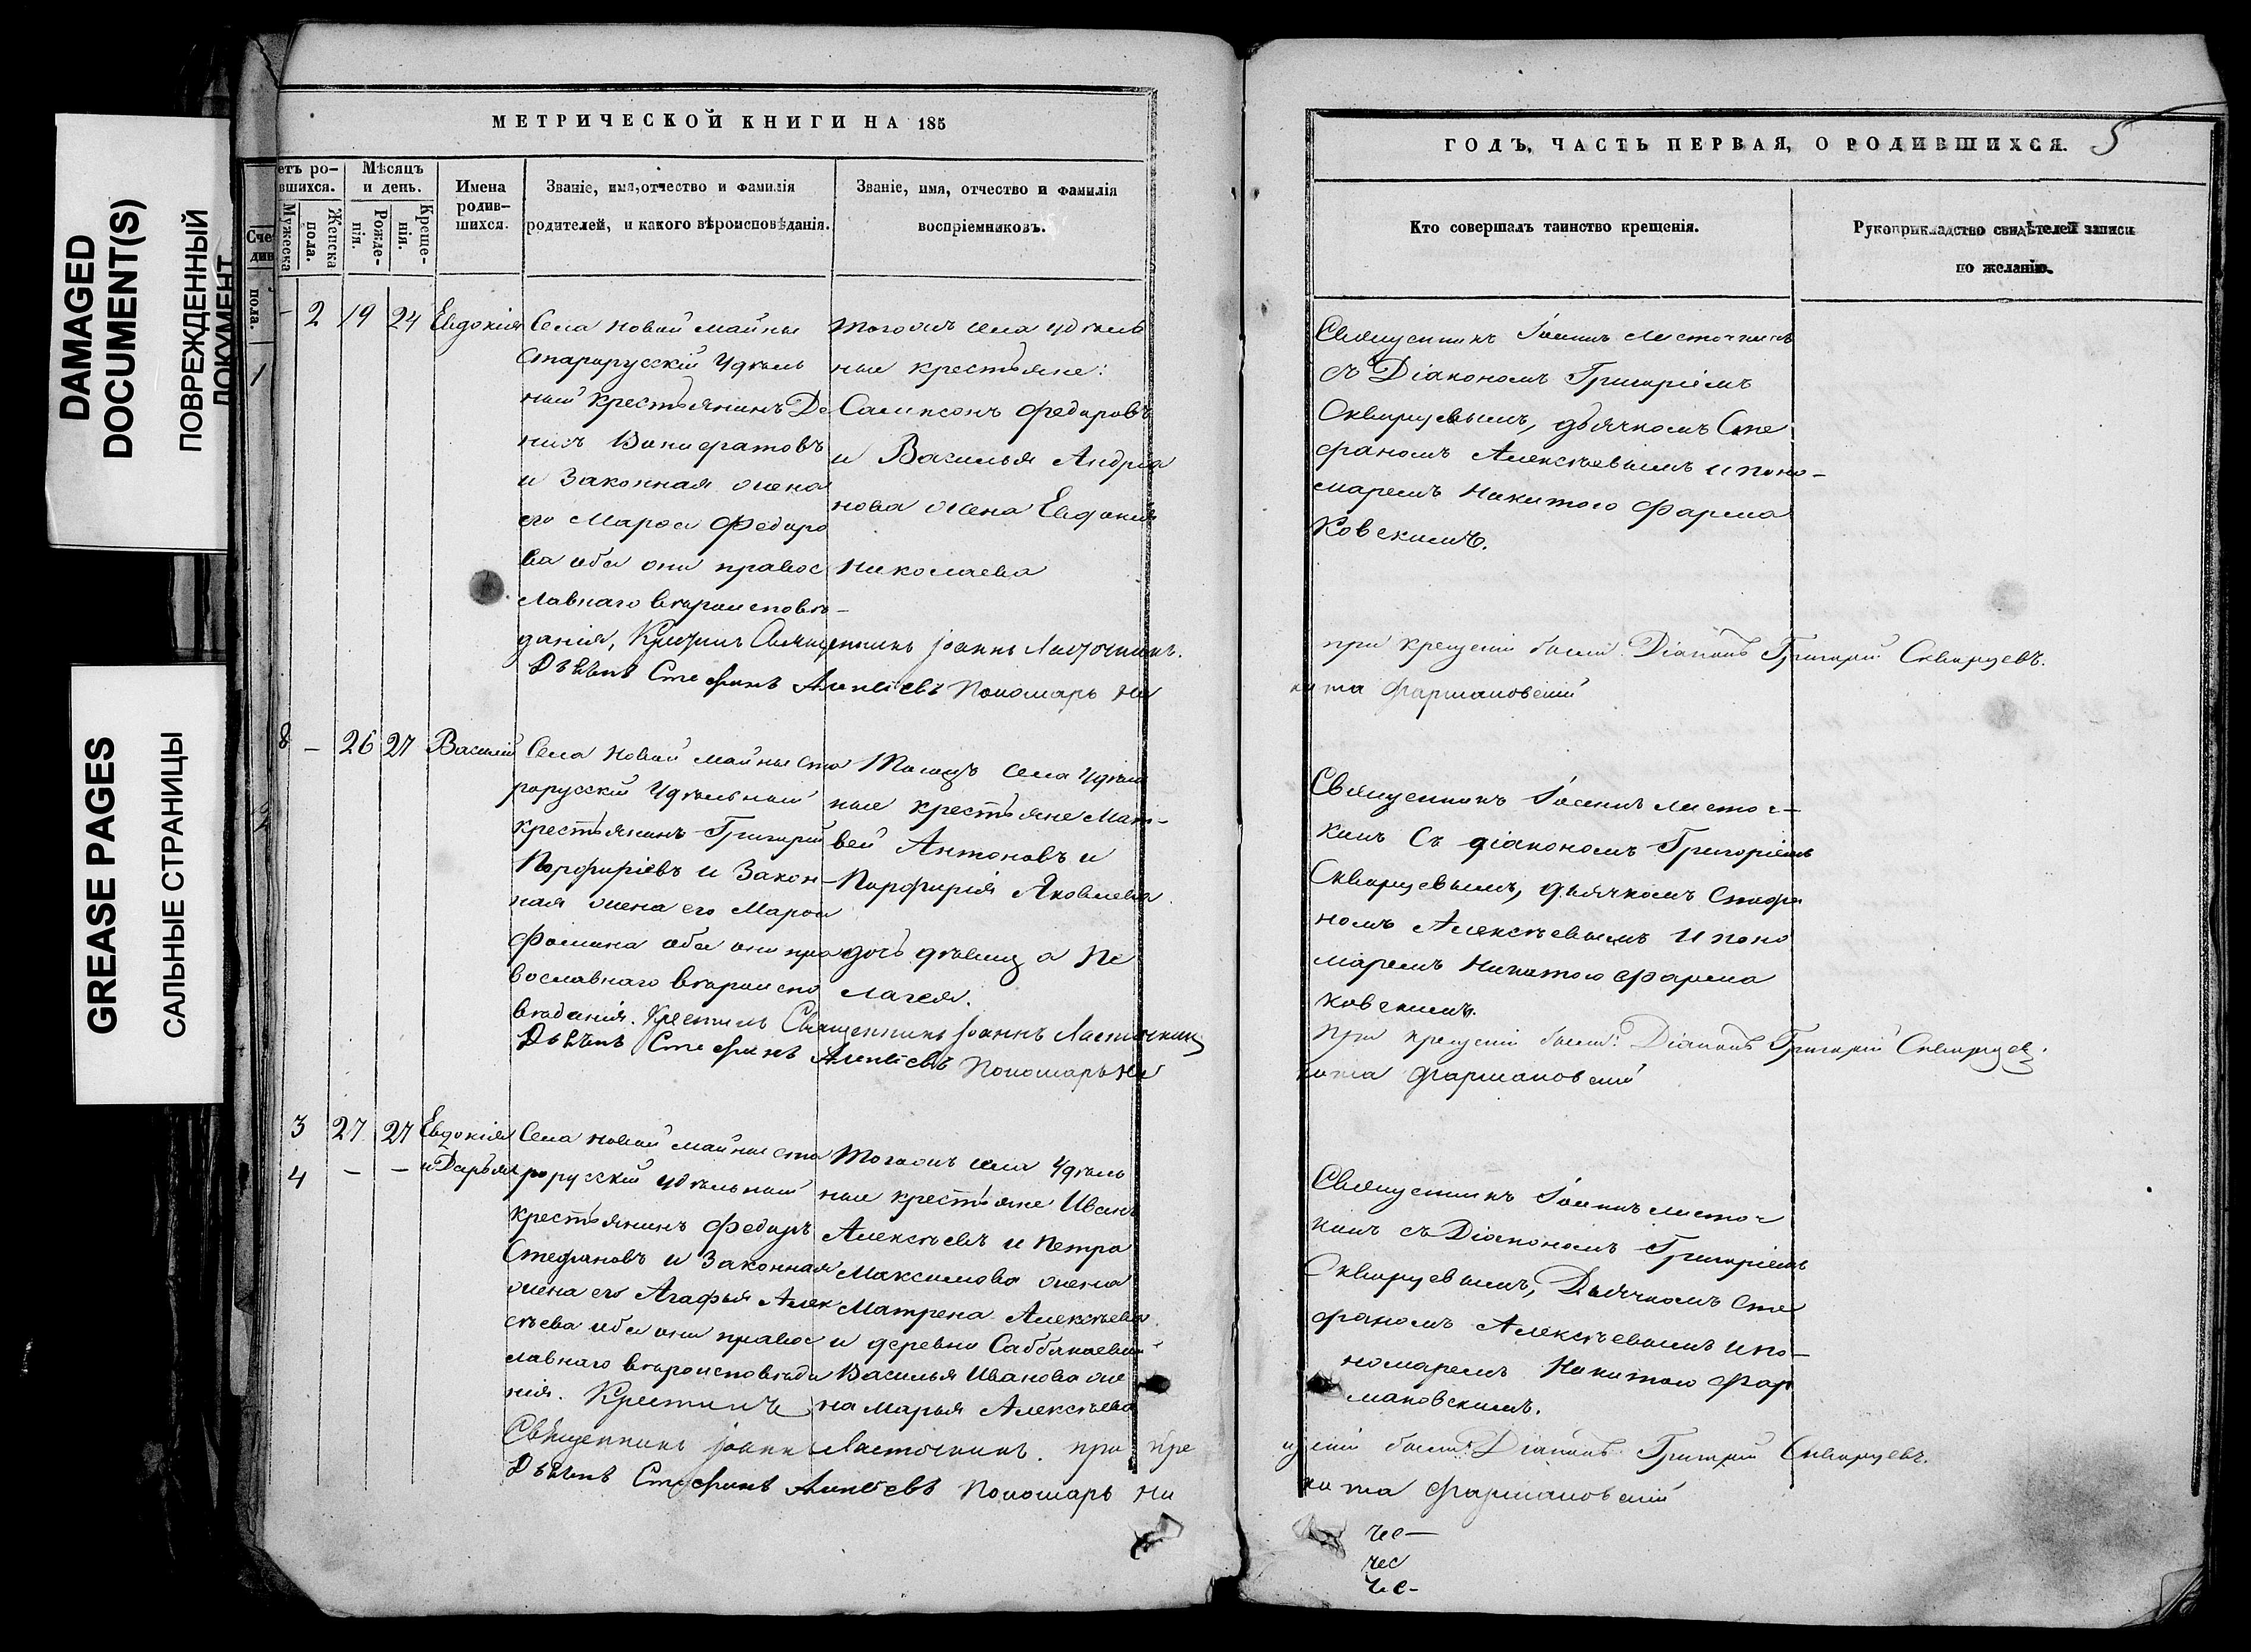 DAMAGED
DOCUMENT(S)
ПОВРЕЖДЕННЫЙ
ДОКУМЕНТ
GREASE PAGES
САЛЬНЫЕ СТРАНИЦЫ
МЕТРИЧЕСКОЙ КНИГИ НА 185
Сче
див
пола.
1
етъ ро-
вшихся.
Мужеска
Женска
пола.
Мѣсяцъ
и день.
Рожде-
нія.
Креще-
нія.
Имена
родив-
шихся.
Званіе, имя, отчество и фамилія
родителей, и какого вѣроисповѣданія.
Званіе, имя, отчество и фамилія
воспріемниковъ.
- 2 19 24 Евдокія
Села Новой майны
Старорусскій Удѣль
ный крестьянинъ Де
нисъ Вонифатовъ
и Законная жена
его Марѳа Федоро
ва оба они правос
лавнаго вѣроисповѣ-
данія, Крестилъ Священникъ Іоаннъ Ласточкинъ.
Дьячекъ Стефанъ Алексѣевъ Пономарь Ни
тогожъ села удѣль
ные крестьяне:
Самсонъ Федоровъ
и Василья Андреа
нова жена Евдокія
Николаева
8 - 26 27 Василій
Села Новой майны ста
рорусскій Удѣльный
крестьянинъ Григорій
Порфиріевъ и Закон-
ная жена его Марѳа
Фомина оба они пра
вославнаго вѣроиспо
вѣданія. Крестилъ Священникъ Іоаннъ Ласточкинъ
Дьячекъ Стефанъ Алексѣевъ Пономарь Ни
Тогожъ села Удѣль
ные крестьяне Мат-
вей Антоновъ и
Порфирія Яковлева
дочь дѣвица Пе
лагея.
3 27 27 Евдокія
4 - - и Дарья
Села Новой майны ста
рорусскій удѣльный
крестьянинъ Федоръ
Стефановъ и Законная
жена его Агафья Алек
сѣева оба они правос
лавнаго вѣроисповѣда
нія. Крестилъ
Священникъ Іоаннъ Ласточкинъ. при кре
Дьячекъ Стефанъ Алексѣевъ Пономарь Ни
Тогожъ села Удѣль
ные крестьяне Иванъ
Алексѣевъ и Петра
Максимова жена
Матрена Алексѣева
и деревни
Василья Иванова же
на Марья Алексѣева
ГОДЪ, ЧАСТЬ ПЕРВАЯ, О РОДИВШИХСЯ.
5
Кто совершалъ таинство крещенія.
Рукоприкладство свидѣтелей записи
по желанію.
Священникъ Іоаннъ Ласточкинъ
съ Діакономъ Григоріемъ
Скворцевымъ, дьячкомъ Сте
фаномъ Алексѣевымъ и поно-
маремъ Никитою Фарма
ковскимъ.
при крещеніи были: Діаконъ Григорій Скворцевъ.
кита Фармаковскій
Священникъ Іоаннъ Ласточ-
кинъ Съ діакономъ Григоріемъ
Скворцевымъ, дьячкомъ Стефа
номъ Алексѣевымъ и поно
маремъ Никитою Фарма
ковскимъ.
При крещеніи были: Діаконъ Григорій Скворцевъ.
кита Фармаковскій
Священникъ Іоаннъ Ласточ
кинъ съ Діакономъ Григоріемъ
Скворцевымъ, Дьячкомъ Сте
фаномъ Алексѣевымъ и по-
номаремъ Никитою Фар
маковскимъ.
щеніи были: Діаконъ Григорій Скворцевъ.
кита Фармаковскій